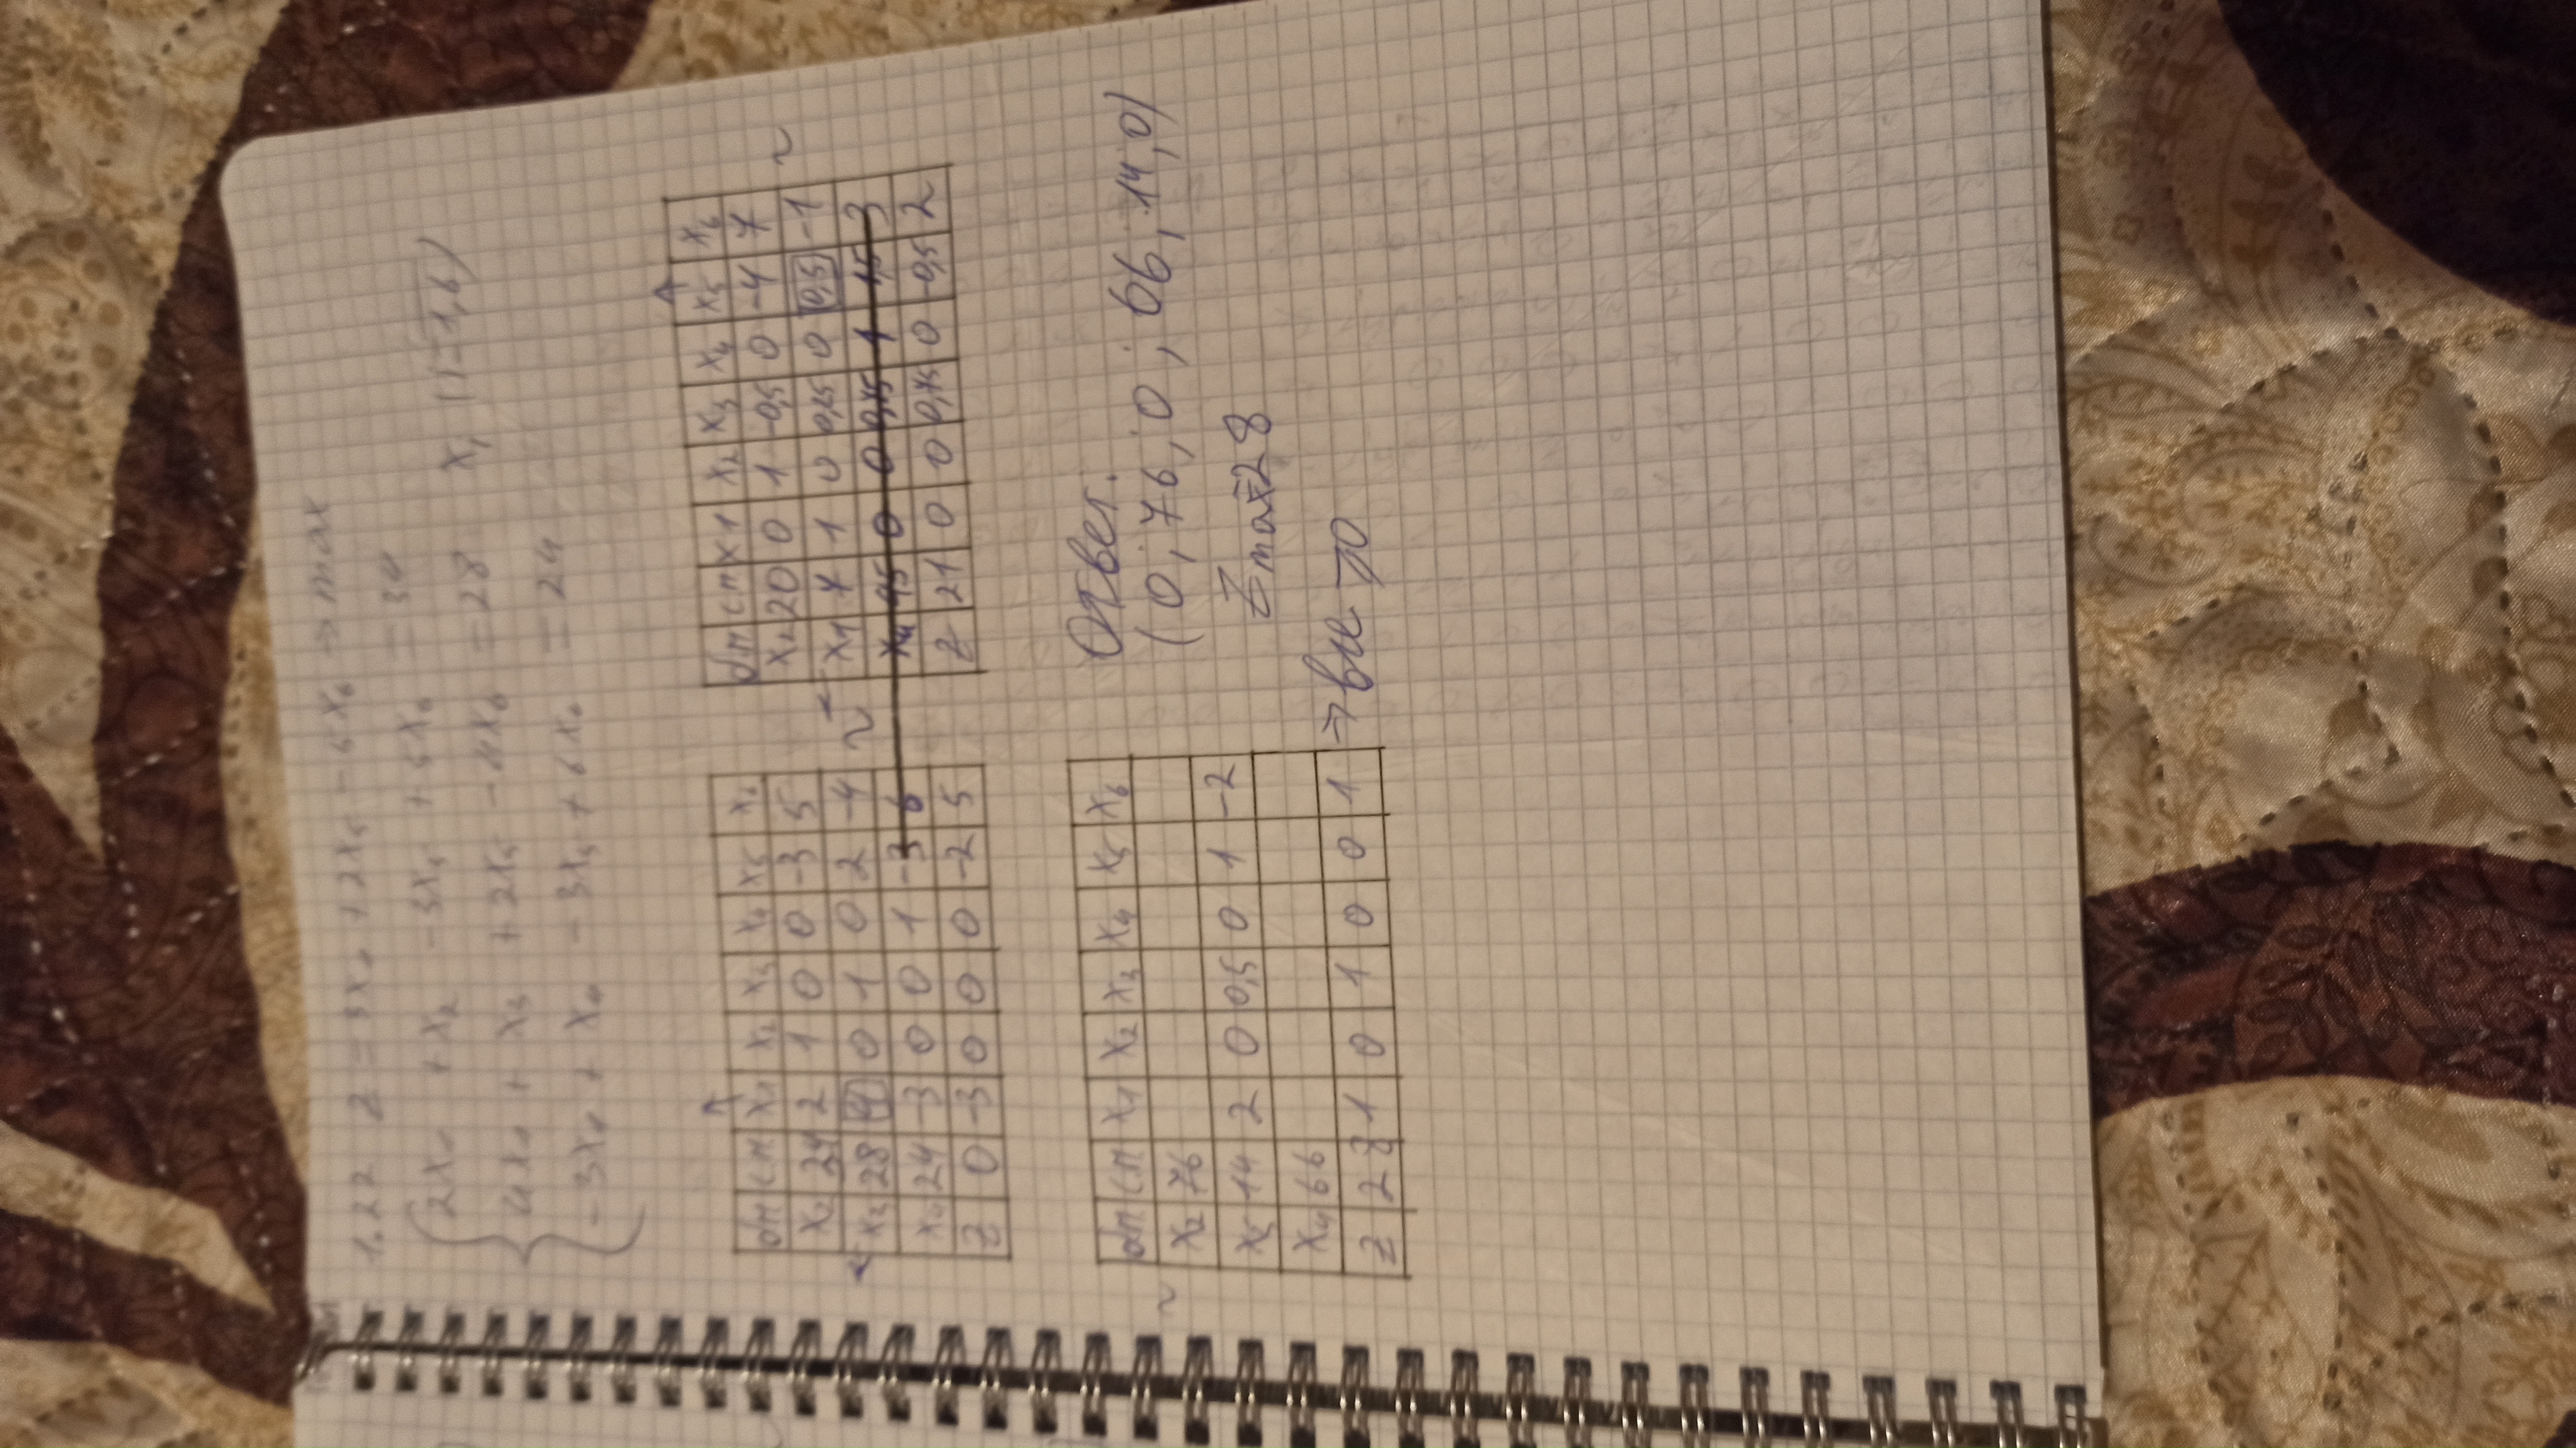 1.22 Z = 3x₁ + 2x₅ - 5x₆ → max
2x₁ + x₂ - 3x₅ + 5x₆ = 34
4x₁ + x₃ + 2x₅ - 4x₆ = 28 xⱼ (j=1,6)
-3x₁ + x₄ - 3x₅ + 6x₆ = 24
бп сп x₁ x₂ x₃ x₄ x₅ x₆
x₂ 34 2 1 0 0 -3 5
x₃ 28 4 0 1 0 2 -4 ~
x₄ 24 -3 0 0 1 -3 6
Z 0 -3 0 0 0 -2 5
бп сп x1 x₂ x₃ x₄ x₅ x₆
x₂ 20 0 1 -0,5 0 -4 7
x₁ 7 1 0 0,25 0 0,5 -1 ~
x₄ 45 0 0 0,75 1 -1,5 3
Z 21 0 0 0,75 0 -0,5 2
~ бп сп x₁ x₂ x₃ x₄ x₅ x₆
x₂ 76
x₅ 14 2 0 0,5 0 1 -2
x₄ 66
Z 28 1 0 1 0 0 1 → все ≥0
Ответ.
(0; 76; 0; 66; 14, 0)
Zmax=28